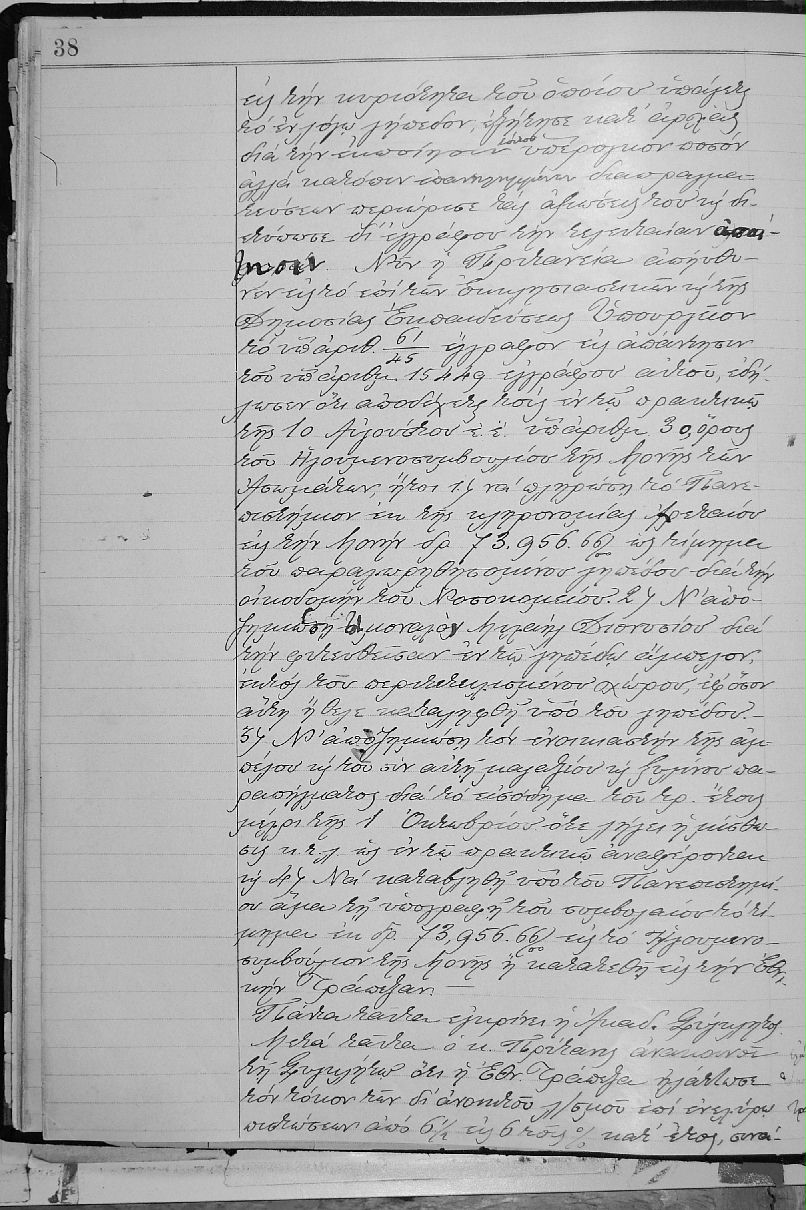 38
εἰς τὴν κυριότητα τοῦ ὁποίου ὑπάγεται
τὸ ἐν λόγῳ γήπεδον, ἐζήτησε κατ' ἀρχὰς
διὰ τὴν ἐκποίησιν τούτου ὑπέρογκον ποσὸν
ἀλλὰ κατόπιν ἐπανειλημμένων διαπραγμα-
τεύσεων περιώρισε τὰς ἀξιώσεις του κ διε-
τύπωσε δι' ἐγγράφου τὴν τελευταίαν ἀπάν-
τησιν. Νῦν ἡ Πρυτανεία ἀπηύθυ-
νεν εἰς τὸ ἐπὶ τῶν Ἐκκλησιαστικῶν κ τῆς
Δημοσίας Ἐκπαιδεύσεως Ὑπουργεῖον
τὸ ὑπ' ἀριθ. 61/45 ἔγγραφον εἰς ἀπάντησιν
τοῦ ὑπ' ἀριθμ. 15449 ἐγγράφου αὐτοῦ, ἐδή-
λωσεν ὅτι ἀποδέχεται τοὺς ἐν τῷ πρακτικῷ
τῆς 10 Αὐγούστου ἐ. ἔ. ὑπ' ἀριθμ. 30, ὅρους
τοῦ Ἡγουμενοσυμβουλίου τῆς Μονῆς τῶν
Ἀσωμάτων, ἤτοι 1) νὰ πληρώσῃ τὸ Πανε-
πιστήμιον ἐκ τῆς κληρονομίας Ἀρεταίου
εἰς τὴν Μονὴν δρ 73,956.66 ὡς τίμημα
τοῦ παραχωρηθησομένου γηπέδου διὰ τὴν
οἰκοδομὴν τοῦ Νοσοκομείου. 2) Ν' ἀπο-
ζημιώσῃ μοναχὸν Μιχαὴλ Διονυσίου διὰ
τὴν φυτευθεῖσαν ἐν τῷ γηπέδῳ ἄμπελον,
ἐκτὸς τοῦ περιτετειχισμένου χώρου, ἐφ' ὅσον
αὕτη ἤθελε καταληφθῆ ὑπὸ τοῦ γηπέδου.-
3) Ν' ἀποζημιώσῃ τὸν ἐνοικιαστὴν τῆς ἀμ-
πέλου κ τοῦ σὺν αὐτῇ μαγαζίου κ ξυλίνου πα-
ραπήγματος διὰ τὸ εἰσόδημα τοῦ τρ. ἔτους
μέχρι τῆς 1 Ὀκτωβρίου ὅτε λήγει ἡ μίσθω-
σις κ.τ.λ. ὡς ἐν τῷ πρακτικῷ ἀναφέρονται
κ 4) Νὰ καταβληθῇ ὑπὸ τοῦ Πανεπιστημί-
ου ἅμα τῇ ὑπογραφῇ τοῦ συμβολαίου τὸ τί-
μημα ἐκ δρ. 73,956.66 εἰς τὸ Ἡγουμενο-
συμβούλιον τῆς Μονῆς ἢ κατατεθῇ εἰς τὴν Ἐθνι-
κὴν Τράπεζαν. —
Πάντα ταῦτα ἐγκρίνει ἡ Ἀκαδ. Σύγκλητος.
Μετὰ ταῦτα ὁ κ. Πρύτανις ἀνακοινοῖ
τῇ Συγκλήτῳ ὅτι ἡ Ἐθν. Τράπεζα ἠλάττωσε
τὸν τόκον τῶν δι' ἀνοικτοῦ λ/σμοῦ ἐπὶ ἐνεχύρῳ
πιστώσεων ἀπὸ 6½ εἰς 6 τοῖς % κατ' ἔτος, συνά-